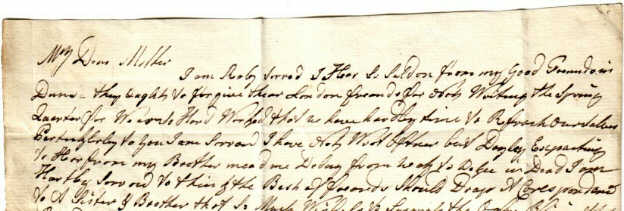 My Dear Mother
I am Very sorred I Hear So Seldom from my Good Freinds in
Duns - they aught to forgive thear London freands for Not Writing the Spring
Quarter for We ware Hard Worked that we have hardly time to Refrash ourselves
Perteculerly to you I am Sorred I have Not Wrot oftner but Dayley Expecting
to Hear from my Brother mead me Delay from week to week in Dead I am
Hartley Sorred to think the Best of freands Should Drap A Corespondanc
to A Sister & Brother that So Much